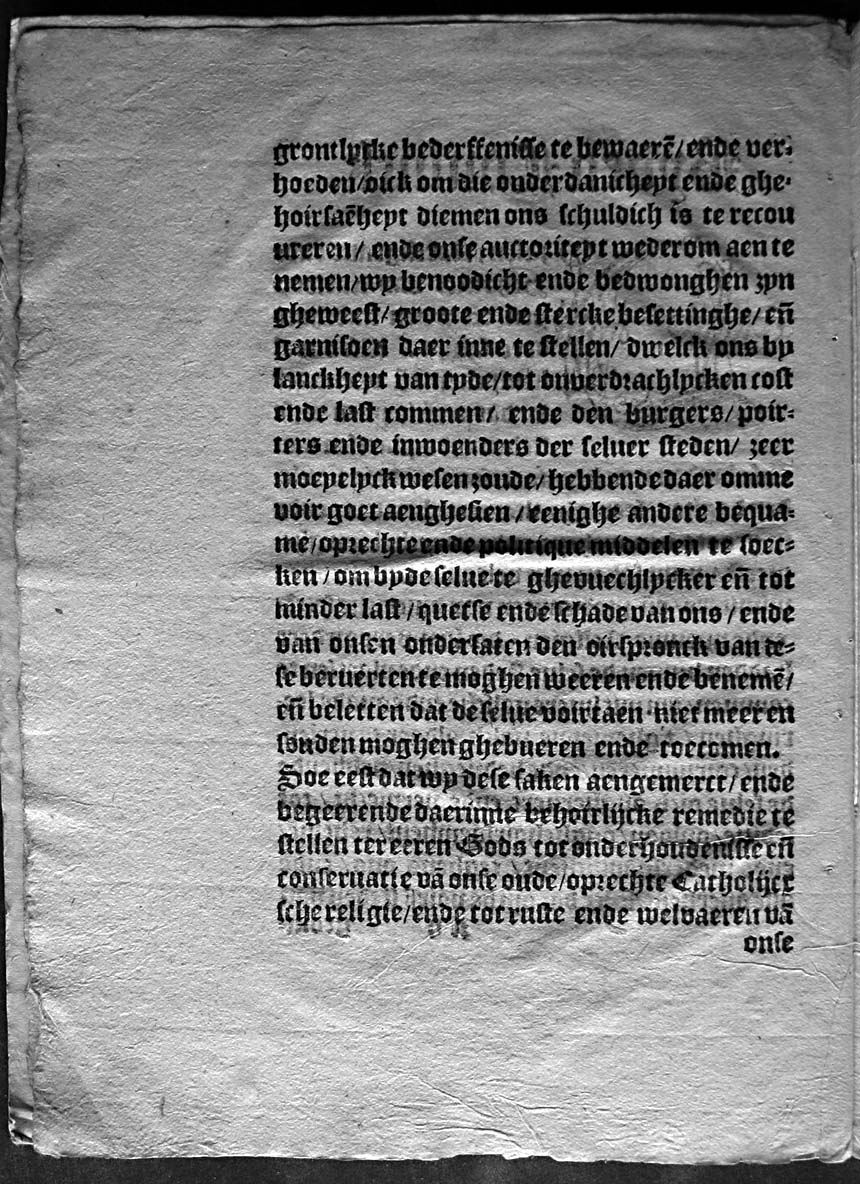 grontlycke bederffenisse te bewaerē/ ende ver-
hoeden/oick om die onderdanicheyt ende ghe-
hoirsaēheyt diemen ons schuldich is te recou
ureren/ ende onse auctoriteyt wederom aen te
nemen/wy benoodicht ende bedwonghen zyn
gheweest/ groote ende stercke besettinghe/ eñ
garnisoen daer inne te stellen/ dwelck ons by
lanckheyt van tyde/tot onverdrachlycken cost
ende last commen/ ende den burgers/ poir-
ters ende inwoenders der seluer steden/ zeer
moeyelyck wesen zoude/ hebbende daer omme
voir goet aenghesien / eenighe andere bequa-
me/oprechte ende politique middelen te soec-
ken / om byde selue te ghevuechlycker eñ tot
minder last / quetse ende schade van ons / ende
van onsen ondersaten den oirspronck van de-
se beruerten te moghen weeren ende benemē/
eñ beletten dat de selue voirtaen niet meer en
souden moghen ghebueren ende toecomen.
Soe eest dat wy dese saken aengemerct/ ende
begeerende daerinne behoirlijcke remedie te
stellen ter eeren Gods tot onderhoudenisse eñ
conseruatie vā onse oude/oprechte Catholijcx
sche religie/ende tot ruste ende welvaeren vā
onse